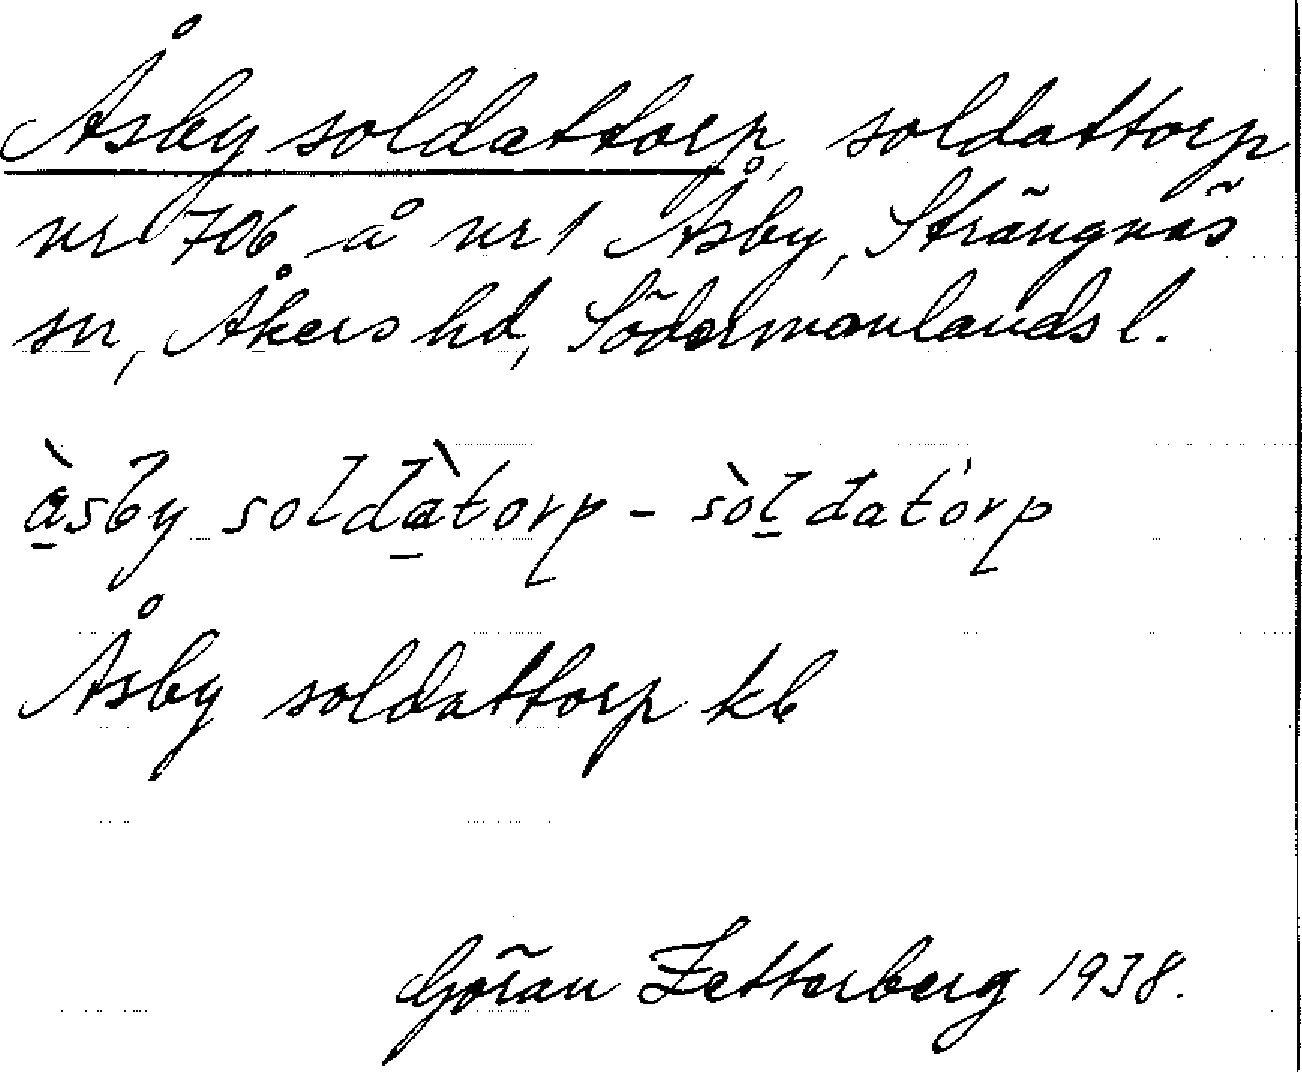 Åsby soldattorp, soldattorp
nr 706 å nr 1 Åsby, Strängnäs
sn, Åkers hd, Södermanlands l.
åsby soldatorp - soldatorp
Åsby soldattorp kb
Göran Zetterberg 1938.